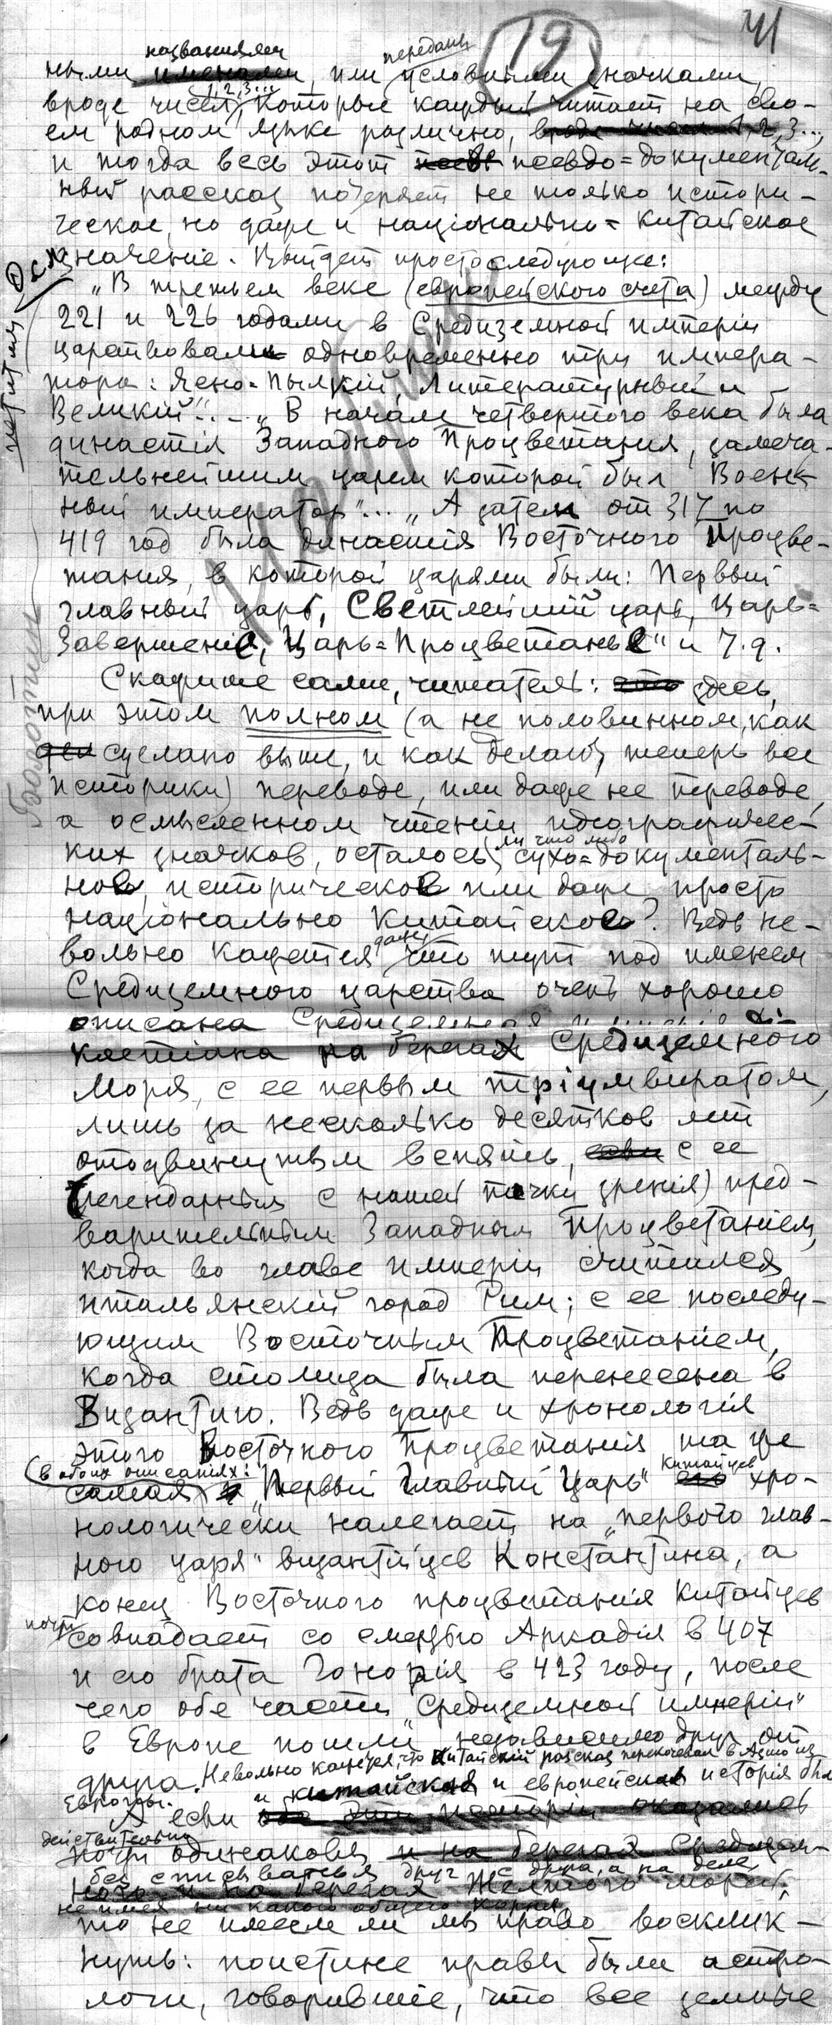 19
41
названиями
передать
ными именами, или условными значками,
1, 2, 3...
вроде чисел, которые каждый читает на сво-
ем родном языке различно, вроде чисел 1, 2, 3...,
и тогда весь этот псевдо=документаль-
ный рассказ потеряет не только истори-
ческое, но даже и национально=китайское
значение. Выйдет просто следующее:
„В третьем веке (европейского счета) между
221 и 226 годами в Средиземной империи
царствовали одновременно три импера-
тора: Ясно=Пылкий, Литературный и
Великий"... „В начале четвертого века была
династія Западного Процветания, замеча-
тельнейшим царем которой был Воен-
ный император"... „А затем от 317 по
419 год была династія Восточного Процве-
тания, в которой царями были: Первый
главный царь, Светлейший царь, Царь=
Завершение, Царь=Процветанье" и т.д.
Скажите сами, читатель: здесь,
при этом полном (а не половинном, как
сделано выше, и как делают теперь все
историки) переводе, или даже не переводе,
а осмысленном чтении идеографичес-
ких значков, осталось ли что либо сухо=документаль-
ное, историческое или даже просто
національно китайское? Ведь не-
вольно кажется даже, что тут под именем
Средиземного царства очень хорошо
описана Средиземная
клетіана на берегах Средиземного
моря, с ее первым тріумвиратом,
лишь за несколько десятков лет
отодвинутым вспять, с ее
(легендарным с нашей точки зрения) пред-
варительным Западным Процветаніем,
когда во главе имперіи считался
итальянский город Рим; с ее последу-
ющим Восточным Процветаніем,
когда столица была перенесена в
Византию. Ведь даже и хронологія
этого Восточного Процветания та же
(в обоих описаниях:
самая „Первый Главный Царь" китайцев хро-
нологически налегает на „первого глав-
ного царя" византійцев Константина, а
конец Восточного процветания китайцев
почти совпадает со смертью Аркадія в 407
и его брата Гонорія в 423 году, после
чего обе части „Средиземной имперіи"
в Европе пошли независимо друг от
друга. Невольно кажется, что китайский рассказ перекочевал в Азию из
Европы.
А если и китайская и европейская история были
действительно
почти одинаковы и на берегах Средизем-
без списыванья друг с друга, а на деле
ного и на берегах Желтого морей,
не имея ни какого общего корня,
то не имеем ли мы право восклик-
нуть: поистине правы были астро-
логи, говорившие, что все земные